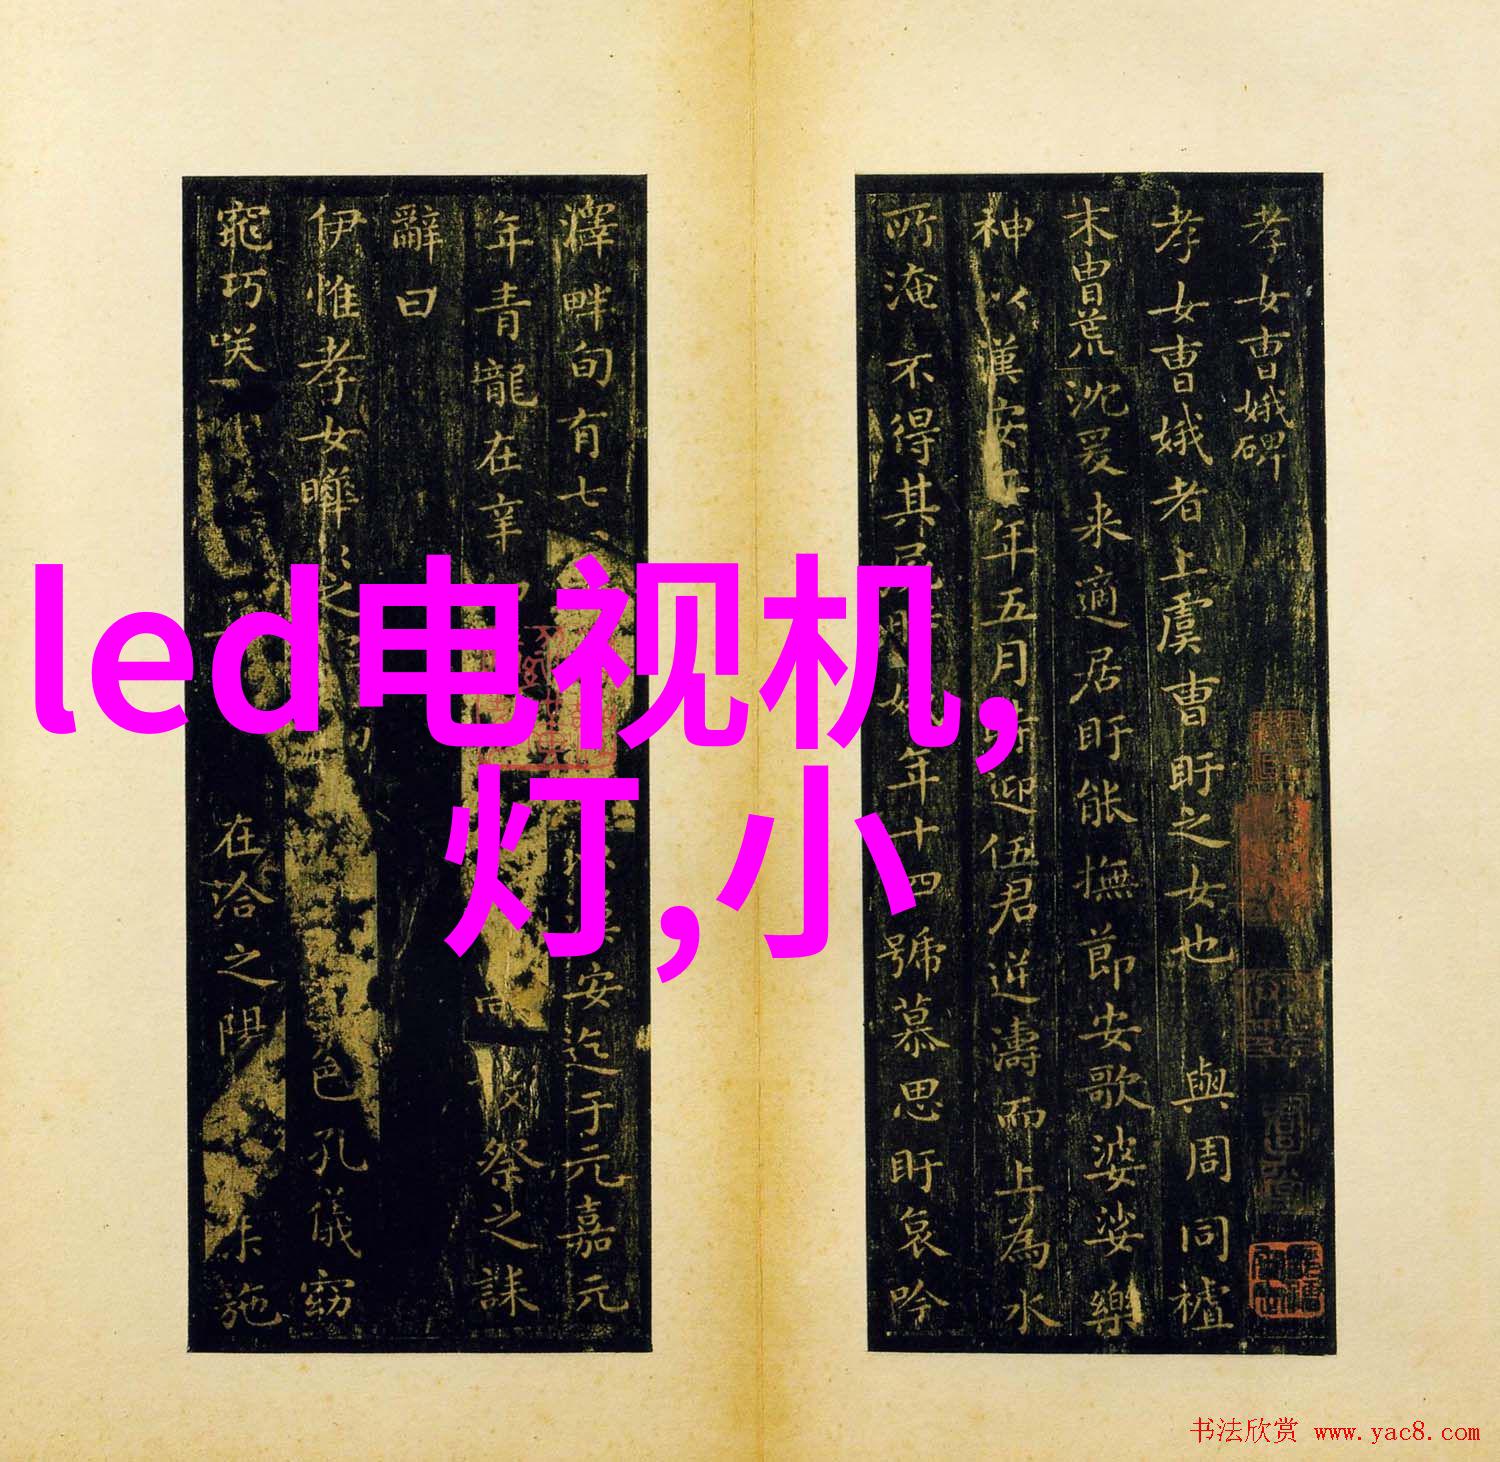 孝女曹娥碑
孝女曹娥者上虞曹盱之女也 與周同禃
末曺荒沈爰来適居盱能撫節安歌婆娑樂
神以漢安二年五月時迎伍君逆濤而上為水
所淹不得其年十四號慕思盱哀吟
澤畔旬有七安迄于元嘉元
年青龍在辛祭之誄
辭曰
伊惟孝女曄之色孔儀窈
窕巧咲在洽之陽施
led电视机,
灯,小
书法欣赏 www.yac8.com